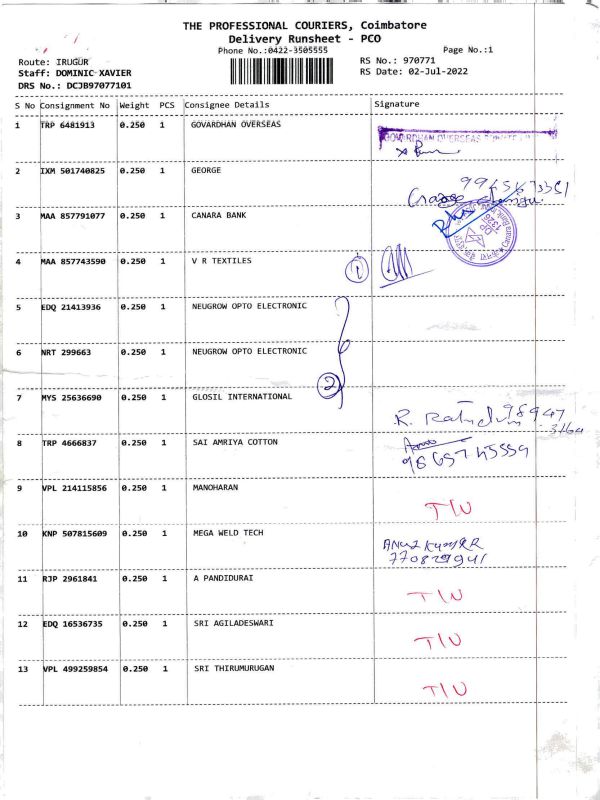 THE PROFESSIONAL COURIERS, Coimbatore
Delivery Runsheet - PCO
Phone No.:0422-3505555
Page No.:1
Route: IRUGUR
RS No.: 970771
Staff: DOMINIC XAVIER
RS Date: 02-Jul-2022
DRS No.: DCJB97077101
S No Consignment No Weight PCS Consignee Details Signature
1 TRP 6481913 0.250 1 GOVARDHAN OVERSEAS
GOVARDHAN OVERSEAS
2 IXM 501740825 0.250 1 GEORGE
3 MAA 857791077 0.250 1 CANARA BANK
Canara Bank
4 MAA 857743590 0.250 1 V R TEXTILES 1
5 EDQ 21413936 0.250 1 NEUGROW OPTO ELECTRONIC
6 NRT 299663 0.250 1 NEUGROW OPTO ELECTRONIC
2
7 MYS 25636690 0.250 1 GLOSIL INTERNATIONAL
8 TRP 4666837 0.250 1 SAI AMRIYA COTTON
9 VPL 214115856 0.250 1 MANOHARAN
T/N
10 KNP 507815609 0.250 1 MEGA WELD TECH
11 RJP 2961841 0.250 1 A PANDIDURAI
T/N
12 EDQ 16536735 0.250 1 SRI AGILADESWARI
T/N
13 VPL 499259854 0.250 1 SRI THIRUMURUGAN
T/N